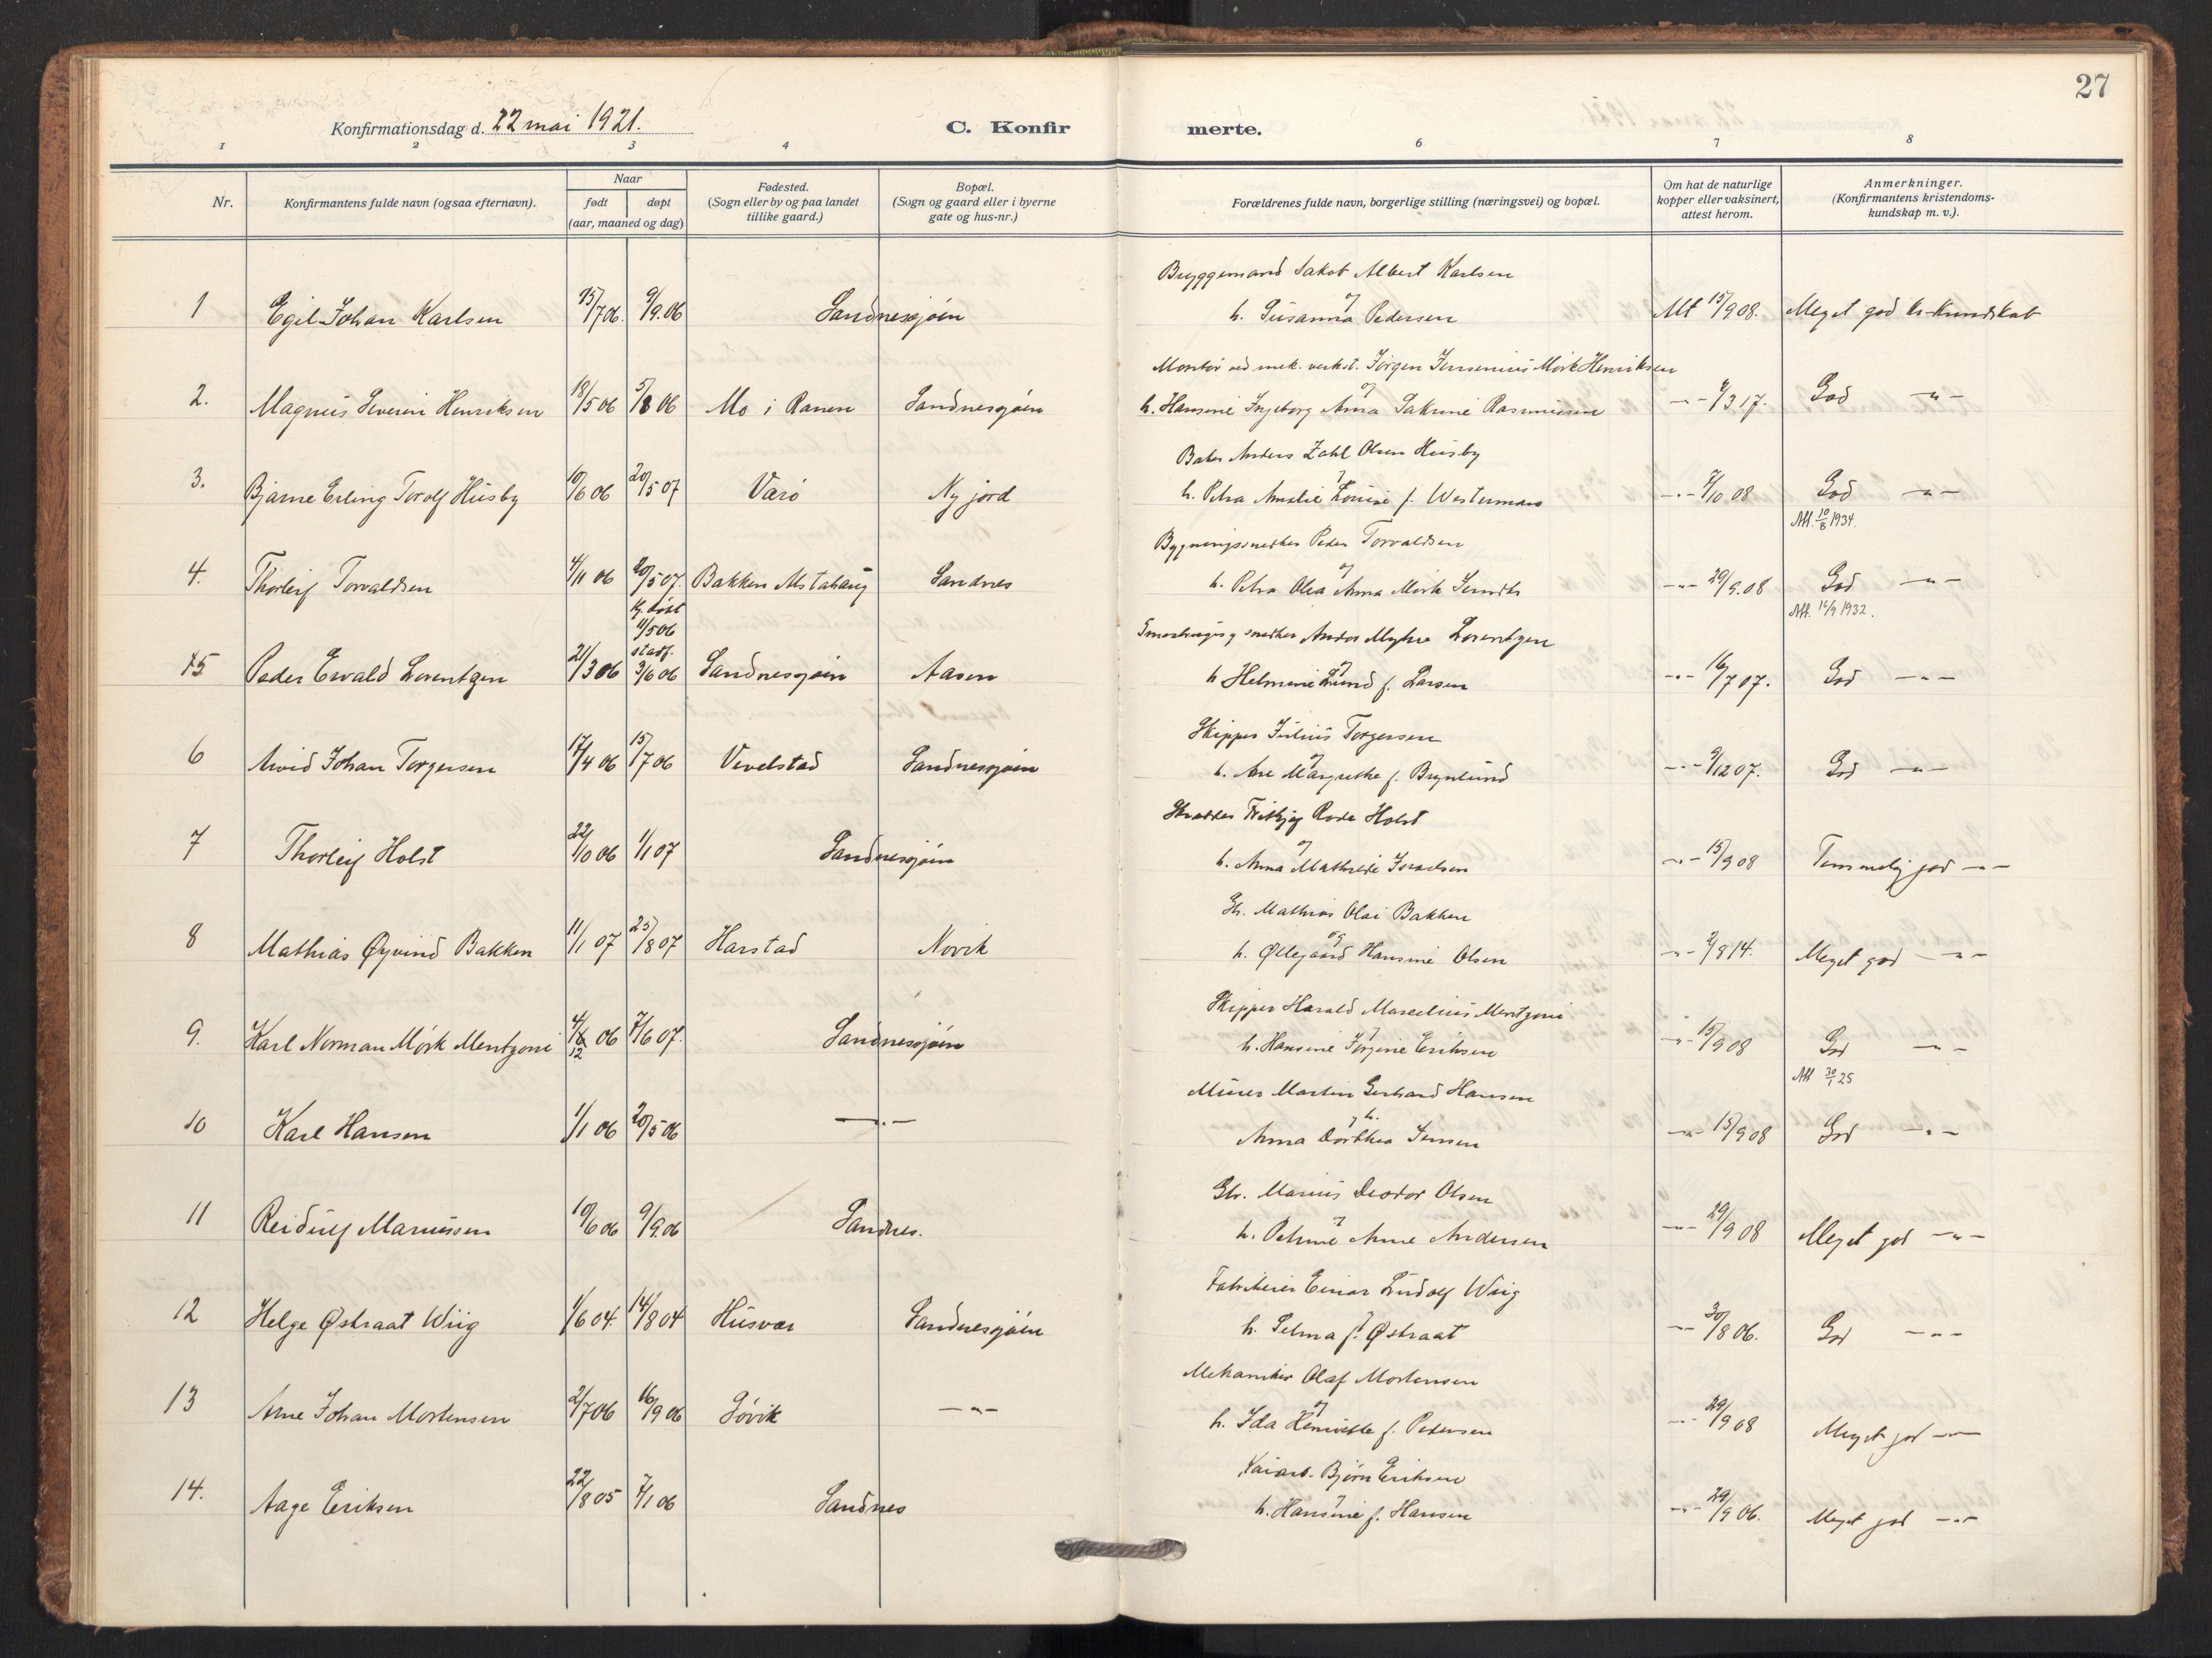 27
Konfirmationsdag d. 22 mai 1921. C. Konfirmerte.
1 2 3 4 6 7 8
Nr. Konfirmantens fulde navn (ogsaa efternavn). Naar født døpt (aar, maaned og dag) Fødested. (Sogn eller by og paa landet tillike gaard.) Bopæl. (Sogn og gaard eller i byerne gate og hus-nr.) Forældrenes fulde navn, borgerlige stilling (næringsvei) og bopæl. Om hat de naturlige kopper eller vaksinert, attest herom. Anmerkninger. (Konfirmantens kristendoms-kundskap m. v.).
Bryggemand Jakob Albert Karlsen
1 Egil Johan Karlsen 15/7 06. 9/9.06 Sandnessjøen og h. Susanna Pedersen Att 15/9 08. Meget god kr-kundskab
Montør ved mek. verkst. Jørgen Jensenius Mørk Henriksen
2. Magnus Severin Henriksen 18/5 06 5/8 06 Mo i Ranen Sandnessjøen og h. Hansine Ingeborg Anna Sakrine Rasmussen -"- 9/3 17. God -"-
Baker Anders Zahl Olsen Husby
3. Bjarne Erling Torolf Husby 10/6 06 20/5 07 Værø Ny jord og h. Petra Amalie Louise f. Westermann -"- 7/10 08 God -"-
Att. 10/8 1934.
Bygningssnedker Peder Torvaldsen
4. Thorleif Torvaldsen 4/11 06 20/5 07. Bakken Alstahaug Sandnes og h. Petra Olea Anna Mørk -"- 29/9.08 God -"-
Att. 16/9 1932.
hj. døbt 4/5 06 stadf.
Anders Myhre Lorentzen
15 Peder Ewald Lorentzen 21/3 06 3/6 06 Sandnessjøen Aasen og h. Helmine Lund f. Larsen -"- 16/7 07. God -"-
Skipper Julius Torgersen
6 Arvid Johan Torgersen 17/4 06 15/7 06 Vevelstad Sandnessjøen og h. Ane Margrethe f. Brynlund -"- 9/12 07. God -"-
Skrædder Fritjof Rode Holst
7 Thorleif Holst 22/10 06 1/1 07 Sandnessjøen og h. Anna Mathilde Israelsen -"- 15/9 08 Temmelig god -"-
Gb. Mathias Olai Bakken
8 Mathias Øyvind Bakken 11/1 07 25/8 07 Harstad Novik og h. Øllegaard Hansine Olsen -"- 2/8 14. Meget god -"-
Skipper Harald Marcelius Mentzoni
9. Karl Norman Mørk Mentzoni 4/12 06 7/6 07. Sandnessjøen og h. Hansine Jørgine Eriksen -"- 15/9 08 God -"-
Att 30/1 25
Murer Martin Gerhard Hansen
10 Karl Hansen 1/1 06 20/5 06 -"- og h. Anna Dorthea Jensen -"- 15/9 08 God -"-
Gbr. Marius Deodor Olsen
11 Reidulf Mariussen 10/6 06 9/9.06 Sandnes. og h. Petrine Anne Andersen -"- 29/9 08 Meget god -"-
Fabrikeier Einar Ludolf Wiig
12 Helge Østraat Wiig 1/6 04. 14/8 04 Husvær Sandnessjøen og h. Selma f. Østraat -"- 30/8 06. God -"-
Mekaniker Olaf Mortensen
13 Arne Johan Mortensen 2/7 06 16/9 06 Søvik -"- og h. Ida Henriette f. Pedersen -"- 29/9 08 Meget god -"-
Kaiarb. Bjørn Eriksen
14. Aage Eriksen 22/8 05 7/1 06 Sandnes og h. Hansine f. Hansen -"- 29/9 06. Meget god -"-